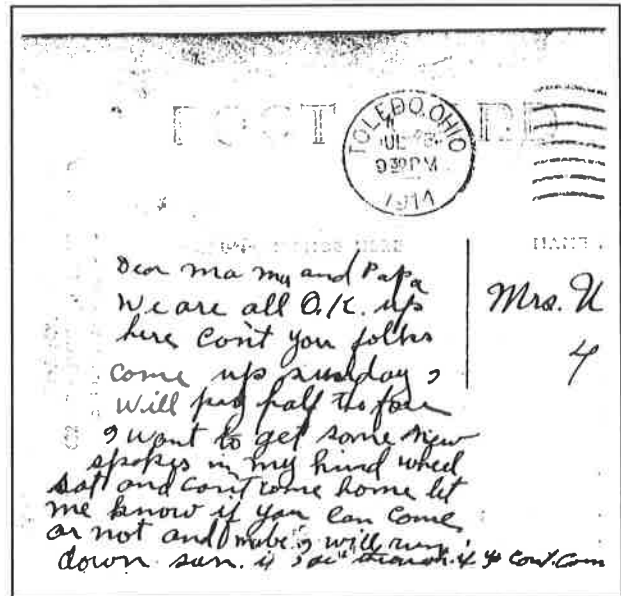 POST CARD
TOLEDO, OHIO
JUL
9 30 PM
1914
HERE
Dear mama and Papa
We are all O.K. up
here Can't you folks
come up sunday I
will pay half the fare
I want to get some new
spokes in my hind wheel
sat and can't come home let
me know if you can come
or not and I will run
down sun. if I
Mrs.
4